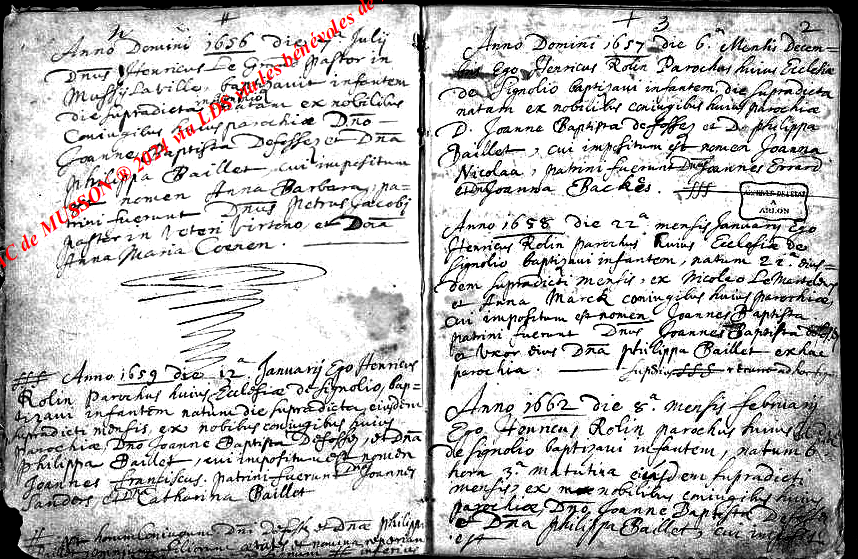 2
Anno Domini 1656 die Julij
Dnus Henricus Le Grand Pastor in
Mussy La ville, baptizavit infantem
die supradicta natam ex nobilibus
Coniugibus huius parochiæ Dno
Joanne Baptista Defosses et Dna
philippa Baillet, cui impositum
est nomen Anna Barbara, pa-
trini fuerunt Dnus Petrus Jacobj
pastor in Veteri Virtono et Dna
Anna Maria Coenen.
Anno 1659 die 12a Januarij Ego Henricus
Rolin parochus huius Ecclesiæ de signolio, bap-
tizavi infantem natum die supradicta eiusdem
supradicti mensis, ex nobilibus coniugibus huius
parochiæ, Dno Joanne Baptista Defosses, et Dna
philippa Baillet, cui impositum est nomen
Joannes franciscus. patrini fuerunt Dnus Joannes
Sanders et Dna Catharina Baillet
horum Coniugum Dni defosses et Dnæ philippæ
nomina
3 2
Anno Domini 1657 die 6a Mensis Decem-
bris Ego Henricus Rolin Parochus huius Ecclesiæ
de Signolio baptizavi infantem, die supradicta
natam ex nobilibus coniugibus huius parochiæ
D. Joanne Baptista defosses et Da philippa
Baillet, cui impositum est nomen Joanna
Nicolaa, patrini fuerunt Dnus Joannes Errard
et Dna Joanna Backes.
ARCHIVES DE L'ETAT
A
ARLON
Anno 1658 die 22a mensis Januarij Ego
Henricus Rolin parochus huius Ecclesiæ de
signolio baptizavi infantem, natum 22a eius-
dem supradicti mensis, ex Nicolao Le
et Anna Marck coniugibus huius parochiæ,
cui impositum est nomen Joannes Baptista
patrini fuerunt Dnus Joannes Baptista
et uxor eius Dna philippa Baillet ex hac
parochia.
Anno 1662 die 8a mensis februarij
Ego Henricus Rolin parochus huius
de signolio baptizavi infantem, natum
hora 3a matutina eiusdem supradicti
mensis, ex nobilibus coniugibus huius
parochiæ, Dno Joanne Baptista
et Dna philippa Baillet, cui
est
de MUSSON ® 2024 via LDS par les bénévoles de